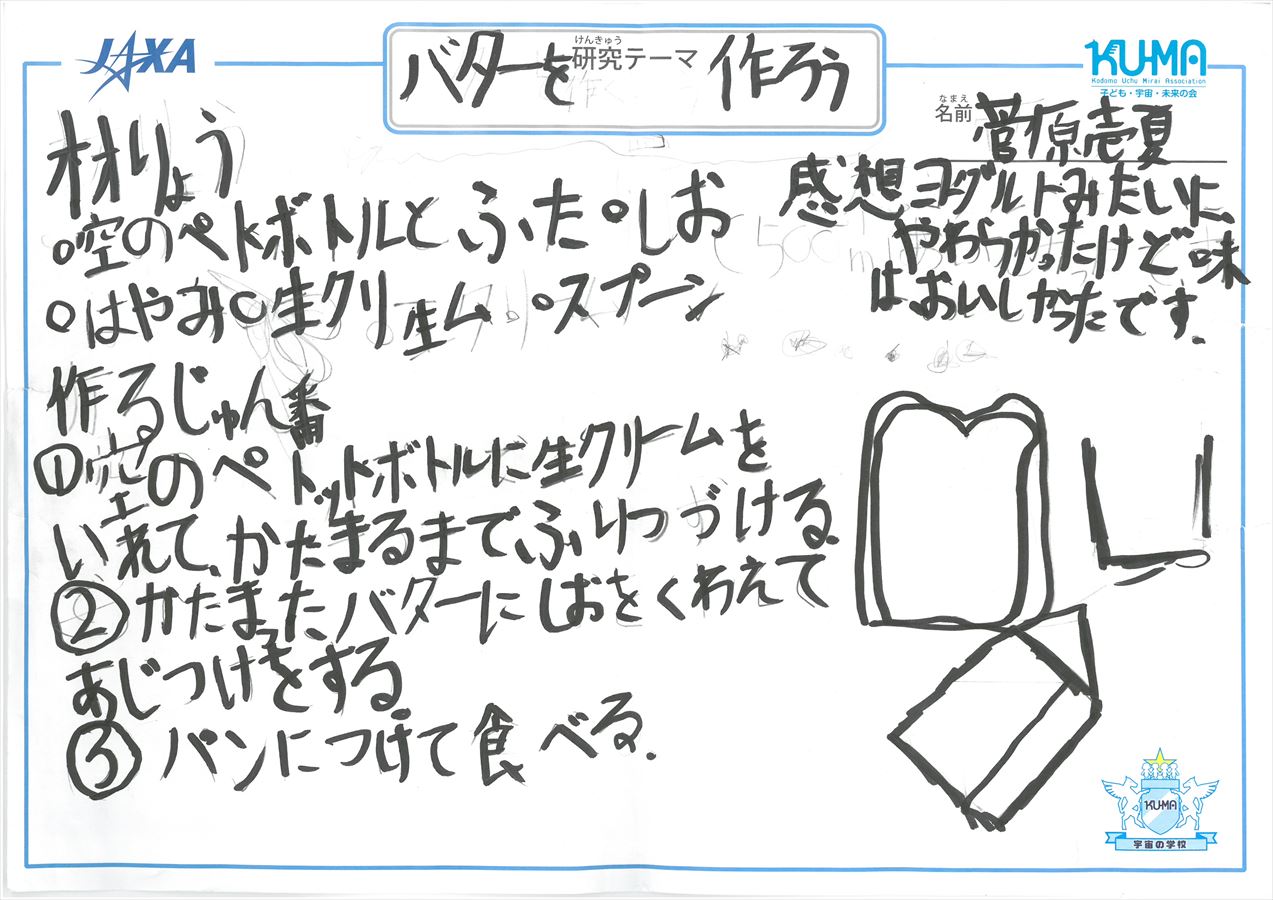 JAXA
けんきゅう
研究テーマ
バターを作ろう
KUMA
Kodomo Uchu Mirai Association
子ども・宇宙・未来の会
なまえ
名前
菅原壱夏
材りょう
○空のペットボトルとふた○しお
○はやみ○生クリーム○スプーン
感想ヨーグルトみたいに、
やわらかかったけど味
はおいしかったです.
作るじゅん番
①空のペットボトルに生クリームを
いれて、かたまるまでふりつづける.
②かたまったバターにしおをくわえて
あじつけをする.
③パンにつけて食べる.
KU-MA
宇宙の学校